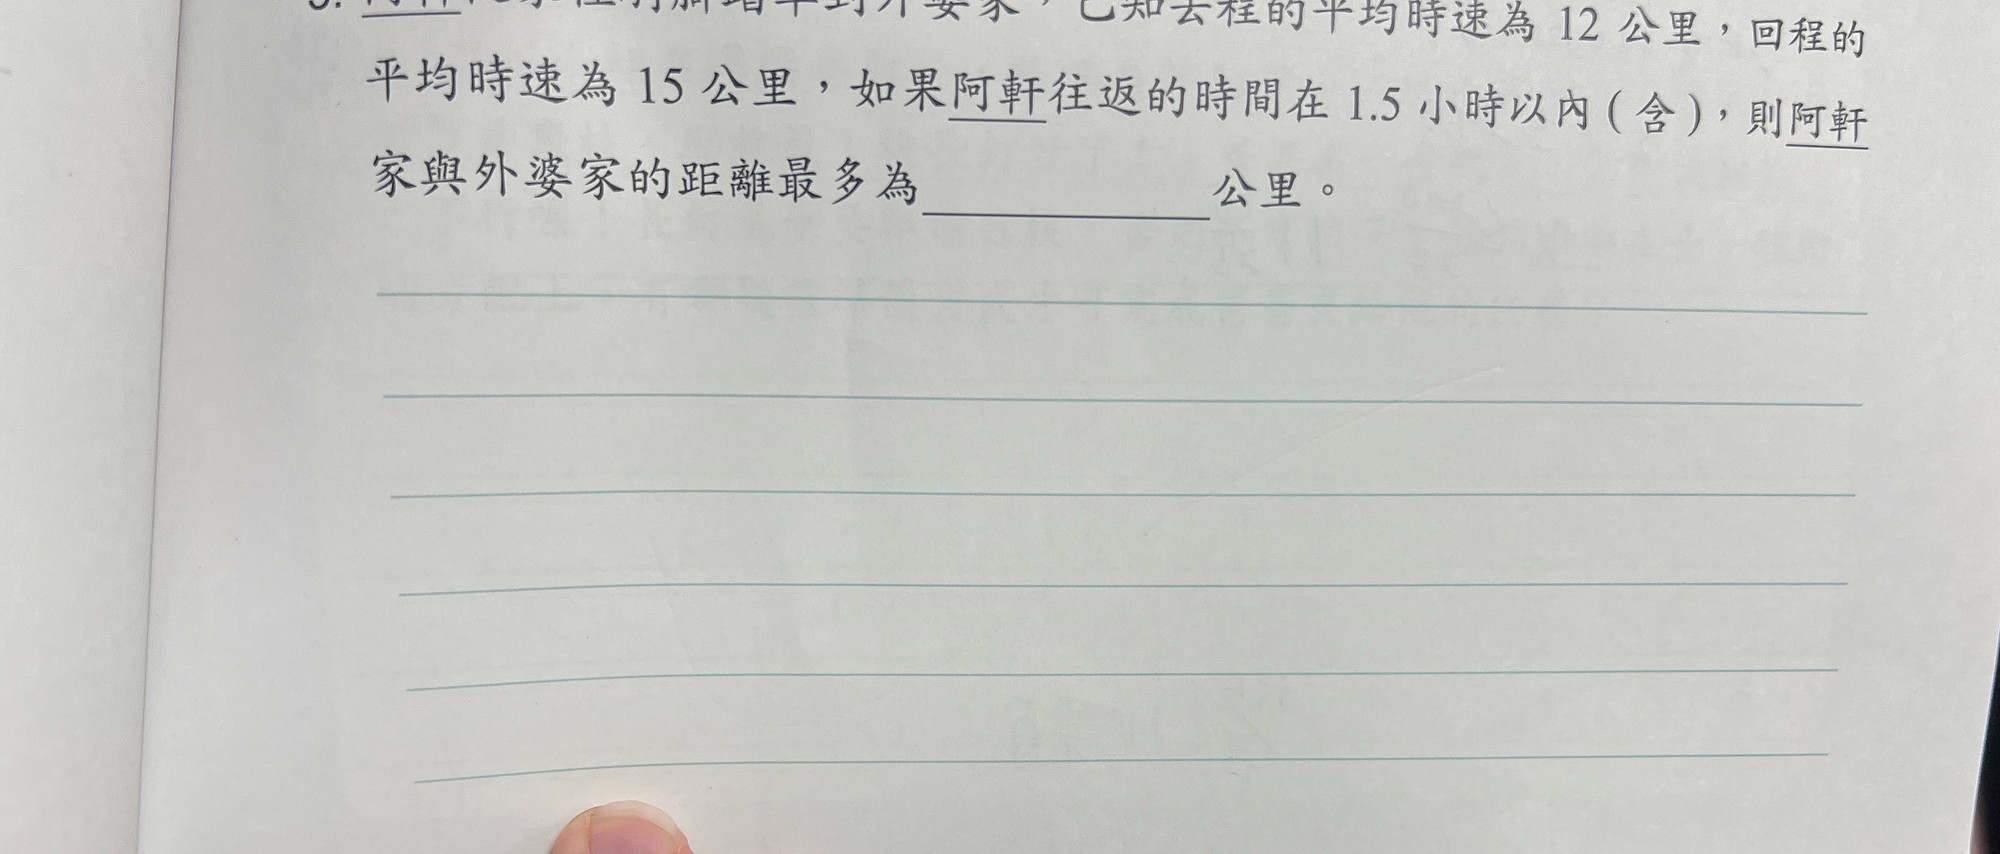 腳踏車到外婆家，已知去程的平均時速為 12 公里，回程的
平均時速為 15 公里，如果阿軒往返的時間在 1.5 小時以內(含)，則阿軒
家與外婆家的距離最多為＿＿＿＿＿＿公里。